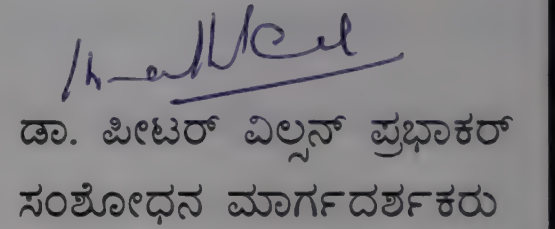 ಡಾ. ಪೀಟರ್ ವಿಲ್ಸನ್ ಪ್ರಭಾಕರ್
ಸಂಶೋಧನ ಮಾರ್ಗದರ್ಶಕರು